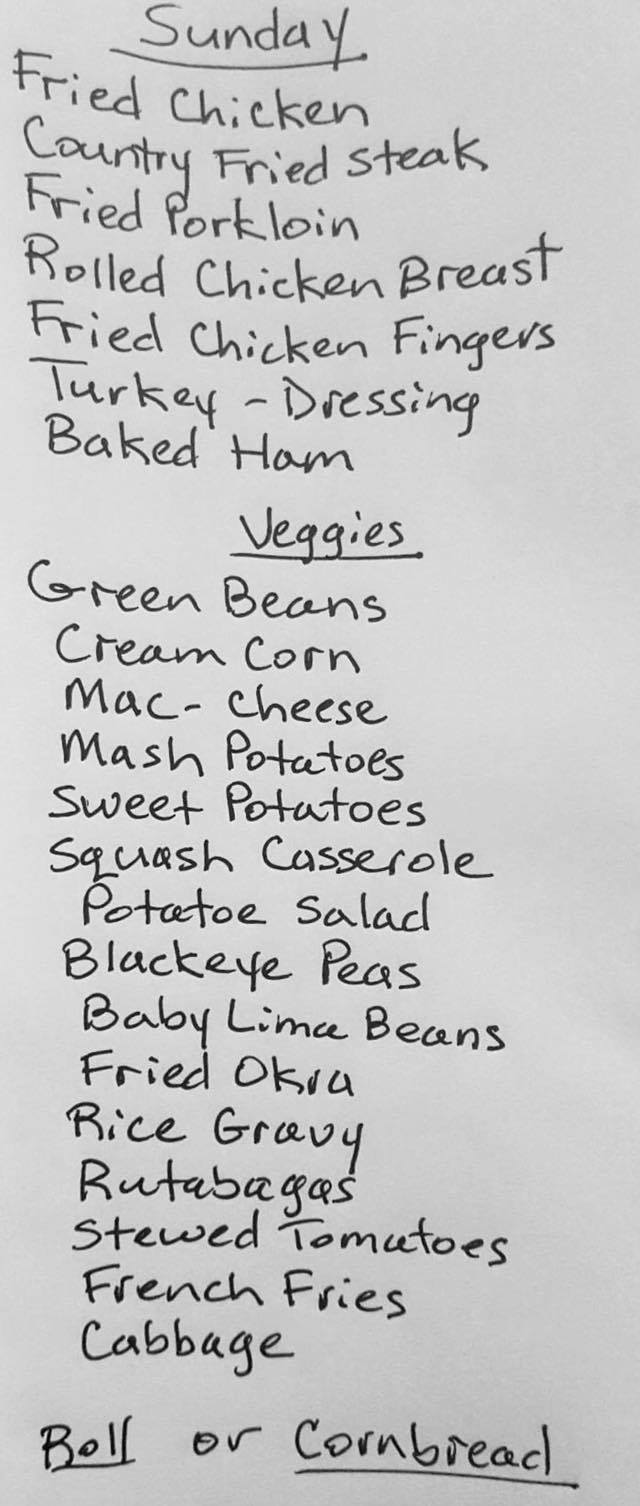 Sunday
Fried Chicken
Country Fried Steak
Fried Porkloin
Rolled Chicken Breast
Fried Chicken Fingers
Turkey - Dressing
Baked Ham
Veggies
Green Beans
Cream Corn
Mac- Cheese
Mash Potatoes
Sweet Potatoes
Squash Casserole
Potatoe Salad
Blackeye Peas
Baby Lima Beans
Fried Okra
Rice Gravy
Rutabagas
Stewed Tomatoes
French Fries
Cabbage
Roll or Cornbread